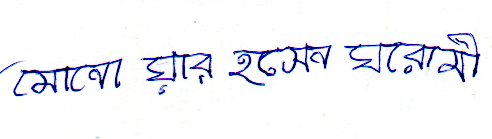 মোনো য়ার হসেন ঘরোামী